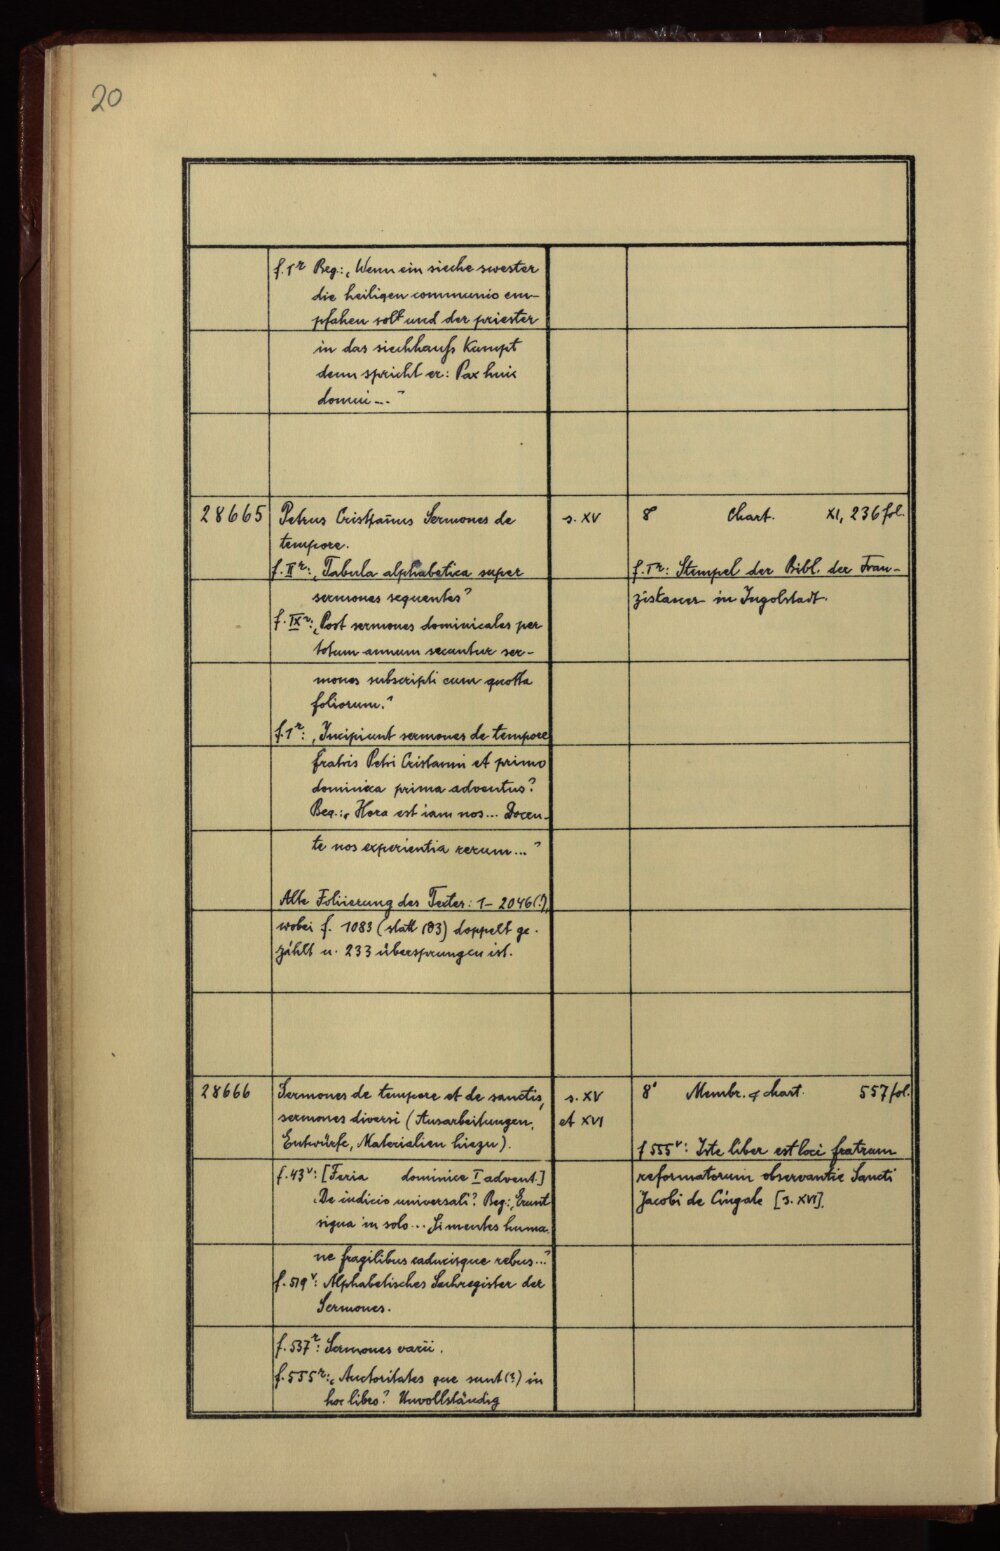 20
f. 1r Beg.: „Wenn ein sieche swester
die heiligen communio em-
pfahen sollt und der priester
in das siechhaufs kumpt
denn spricht er: Pax huic
domui..."
28665 Petrus Cristan̄us Sermones de s. XV 8° Chart. XI, 236 fol.
tempore.
f. IIr: „Tabula alphabetica super f. Ir: Stempel der Bibl. der Fran-
sermones sequentes" ziskaner in Ingolstadt.
f. IXr: „Post sermones dominicales per
totum annum secuntur ser-
mones subscripti cum quotta
foliorum."
f. 1r: „Incipiunt sermones de tempore
fratris Petri Cristanni et primo
dominica prima adventus."
Beg.: „Hora est iam nos... Docen-
te nos experientia rerum..."
Alte Foliierung des Textes: 1– 2046(!),
wobei f. 1083 (statt 183) doppelt ge-
zählt u. 233 übersprungen ist.
28666 Sermones de tempore et de sanctis, s. XV 8° Membr. & chart. 557 fol.
sermones diversi (Ausarbeitungen, et XVI
Entwürfe, Materialien hiezu). f 555v: Iste liber est loci fratrum
f. 43v: [Feria dominice I advent.] reformatorum observantie Sancti
„De iudicio universali" Beg.: „Erunt Jacobi de Cingale [s. XVI].
signa in sole... Si mentes huma-
ne fragilibus caducisque rebus..."
f. 519v: Alphabetisches Sachregister der
Sermones.
f. 537r: Sermones varii.
f. 555r: „Auctoritates que sunt (?) in
hoc libro." Unvollständig